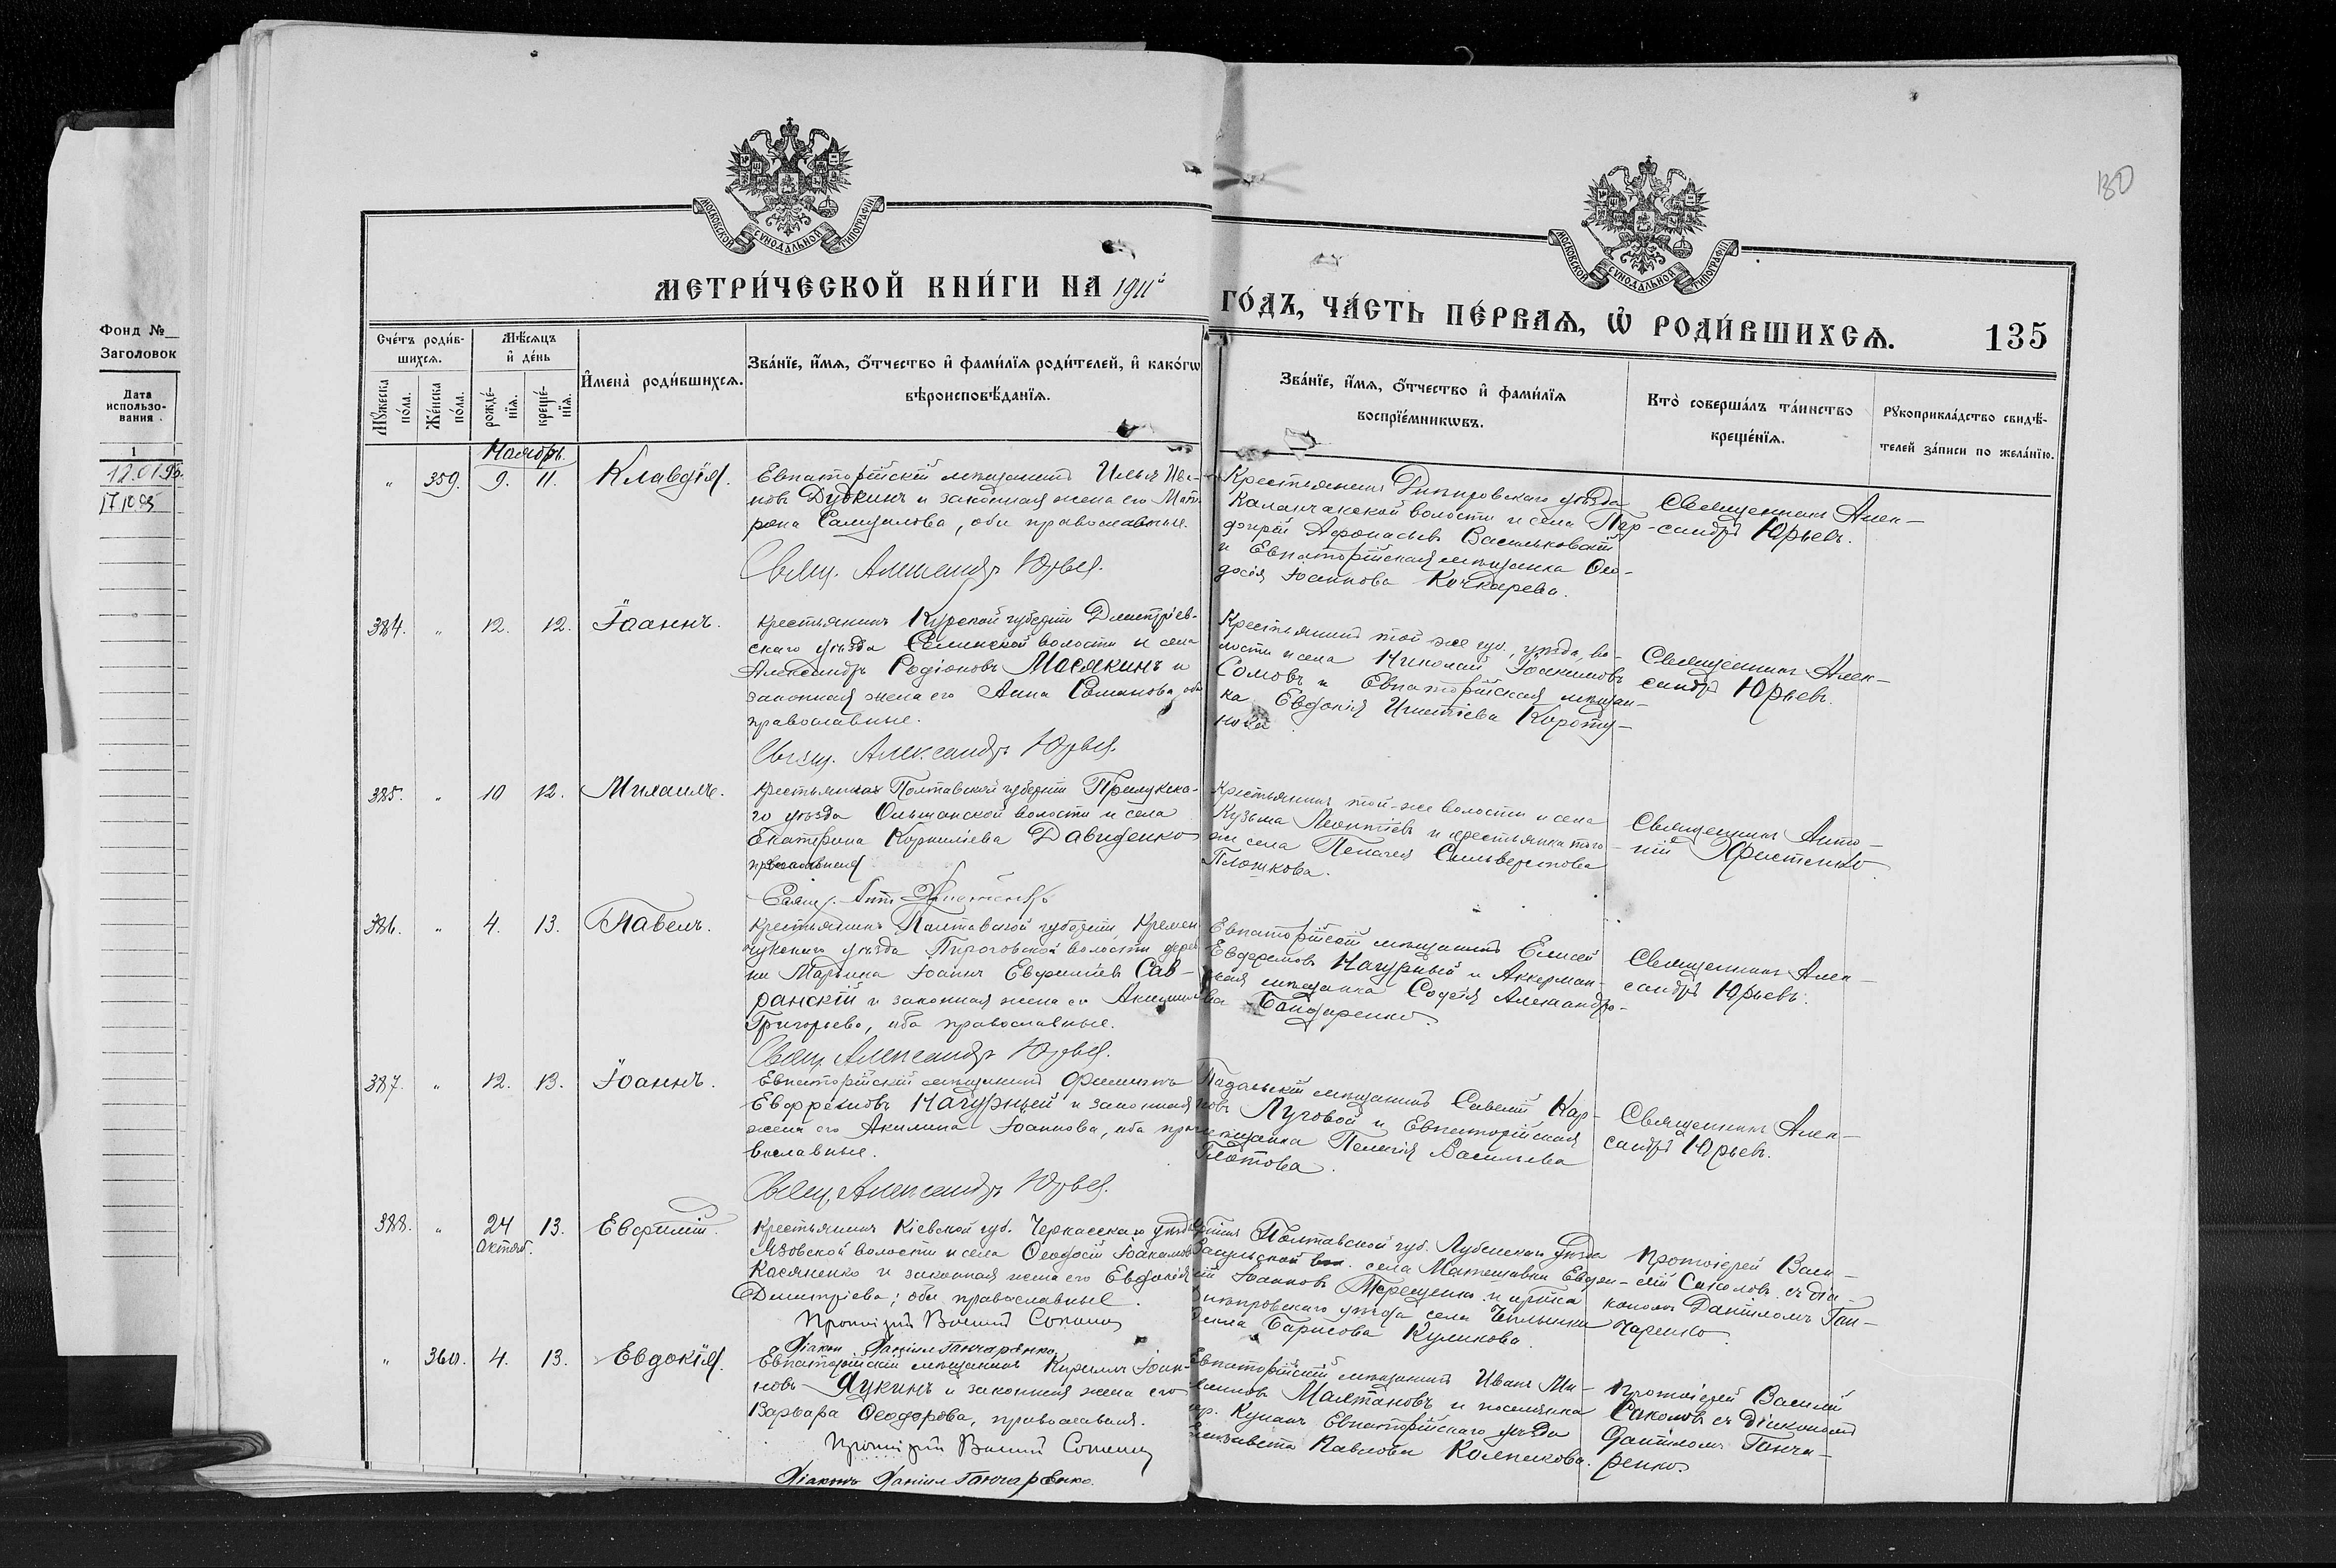 130
МОСКОВСКОЙ СУНОДАЛЬНОЙ ТИПОГРАФІИ
МОСКОВСКОЙ СУНОДАЛЬНОЙ ТИПОГРАФІИ
МЕТРИ́ЧЕСКОЙ КНИ́ГИ НА 1911й
ГО́ДЪ, ЧА́СТЬ ПЕ́РВАѦ, Ѿ РОДИ́ВШИХСѦ.
135
Фонд №
Заголовок
Дата
использо-
вания
1
12.01.95.
Сче́тъ роди́в-
шихсѧ.
Мѣ́сѧцъ
и҆ де́нь
Мꙋ́жеска
по́ла.
Же́нска
по́ла.
рожде́-
нїѧ.
креще́-
нїѧ.
И҆мена̀ роди́вшихсѧ.
Зва́нїе, и҆́мѧ, ѻ҆́тчество и҆ фами́лїѧ роди́телей, и҆ како́гѡ
вѣроисповѣ́данїѧ.
Зва́нїе, и҆́мѧ, ѻ҆́тчество и҆ фами́лїѧ
воспрїе́мникѡвъ.
Кто̀ соверша́лъ та́инство
креще́нїѧ.
Рꙋкоприкла́дство свидѣ́-
телей за́писи по жела́нїю.
Ноябрь.
" 359. 9. 11. Клавдія.
Евпаторійскій мѣщанинъ Илья Ива-
новъ Дудкинъ и законная жена его Мат-
рона Самуилова, оби православные.
Свящ. Александръ Юрьев.
Крестьянинъ Днѣпровскаго уѣзда
Каланчакской волости и села Пар-
фирій Афонасьевъ Васильковскій
и Евпаторійская мѣщанка Ѳео-
досія Іоаннова Кочкарева.
Священникъ Алек-
сандръ Юрьевъ.
384. " 12. 12. Іоаннъ.
Крестьянинъ Курской губерніи Дмитріев-
скаго уѣзда Селинской волости и села
Александръ Родіоновъ Масякинъ и
законная жена его Анна Романова, оба
православные.
Свящ. Александръ Юрьев.
Крестьянинъ той же губ., уѣзда, во-
лости и села Николай Іоакимовъ
Сомовъ и Евпаторійская мѣщан-
ка Евдокія Игнатіева Короту-
нова.
Священникъ Алек-
сандръ Юрьевъ.
385. " 10 12. Михаилъ.
Крестьянка Полтавской губерніи Прилукска-
го уѣзда Ольшанской волости и села
Екатерина Корниліева Давиденко
православная
Свящ. Ант. Христенко
Крестьянинъ той-же волости и села
Кузьма Леонтіевъ и крестьянка того-
же села Пелагея Сильверстова
Плошкова.
Священникъ Анто-
ній Христенко.
386. " 4. 13. Павелъ.
Крестьянинъ Полтавской губерніи, Кремен
чукскаго уѣзда Пироговской волости дерев
ни Марьина Іоаннъ Евфиміевъ Сав-
ранскій и законная жена его Акилина
Григорьева, оба православные.
Свящ. Александръ Юрьев.
Евпаторійскій мѣщанинъ Елисей
Евфремовъ Нагурный и Аккерман-
ская мѣщанка Софія Александро-
ва Бандаренко.
Священникъ Алек-
сандръ Юрьевъ.
387. " 12. 13. Іоаннъ.
Евпаторійскій мѣщанинъ Филиппъ
Евфремовъ Нагурный и законная
жена его Акилина Іоаннова, оба пра-
вославные.
Свящ. Александръ Юрьев.
Падольскій мѣщанинъ Савелій Кар-
повъ Луговой и Евпаторійская
мѣщанка Пелагія Васильева
Глотова.
Священникъ Алек-
сандръ Юрьевъ.
388. " 24 октяб. 13. Евфимій.
Крестьянинъ Кіевской губ. Черкасскаго уѣзда
Мзовской волости и села Ѳеодосій Іоакимовъ
Касяненко и законная жена его Евдокія
Димитріева; оба православные.
Протоіерей Василій Соколов
Діаконъ Даніилъ Ганчаренко
Полтавской губ. Лубенскаго уѣзда
Засульской вол. села Матяшовки Евфи-
мій Іоанновъ Терещенко и крест-ка
Днѣпровскаго уѣзда села Чаплынки
Борисова Куликова.
Протоіерей Васи-
лій Соколовъ съ діа-
кономъ Даніиломъ Ган-
чаренко
" 360. 4. 13. Евдокія.
Евпаторійскій мѣщанинъ Кириллъ Іоан-
новъ Яукинъ и законная жена его
Варвара Ѳеодорова, православная.
Протоіерей Василій Соколов
Діаконъ Даніилъ Ганчаренко.
Евпаторійскій мѣщанинъ Иванъ Ми-
хаиловъ Малтановъ и поселянка
дер. Кунанъ Евпаторійскаго уѣзда
Елизавета Павлова Колпакова.
Протоіерей Василій
Соколовъ съ діакономъ
Даніиломъ Ганча-
ренко